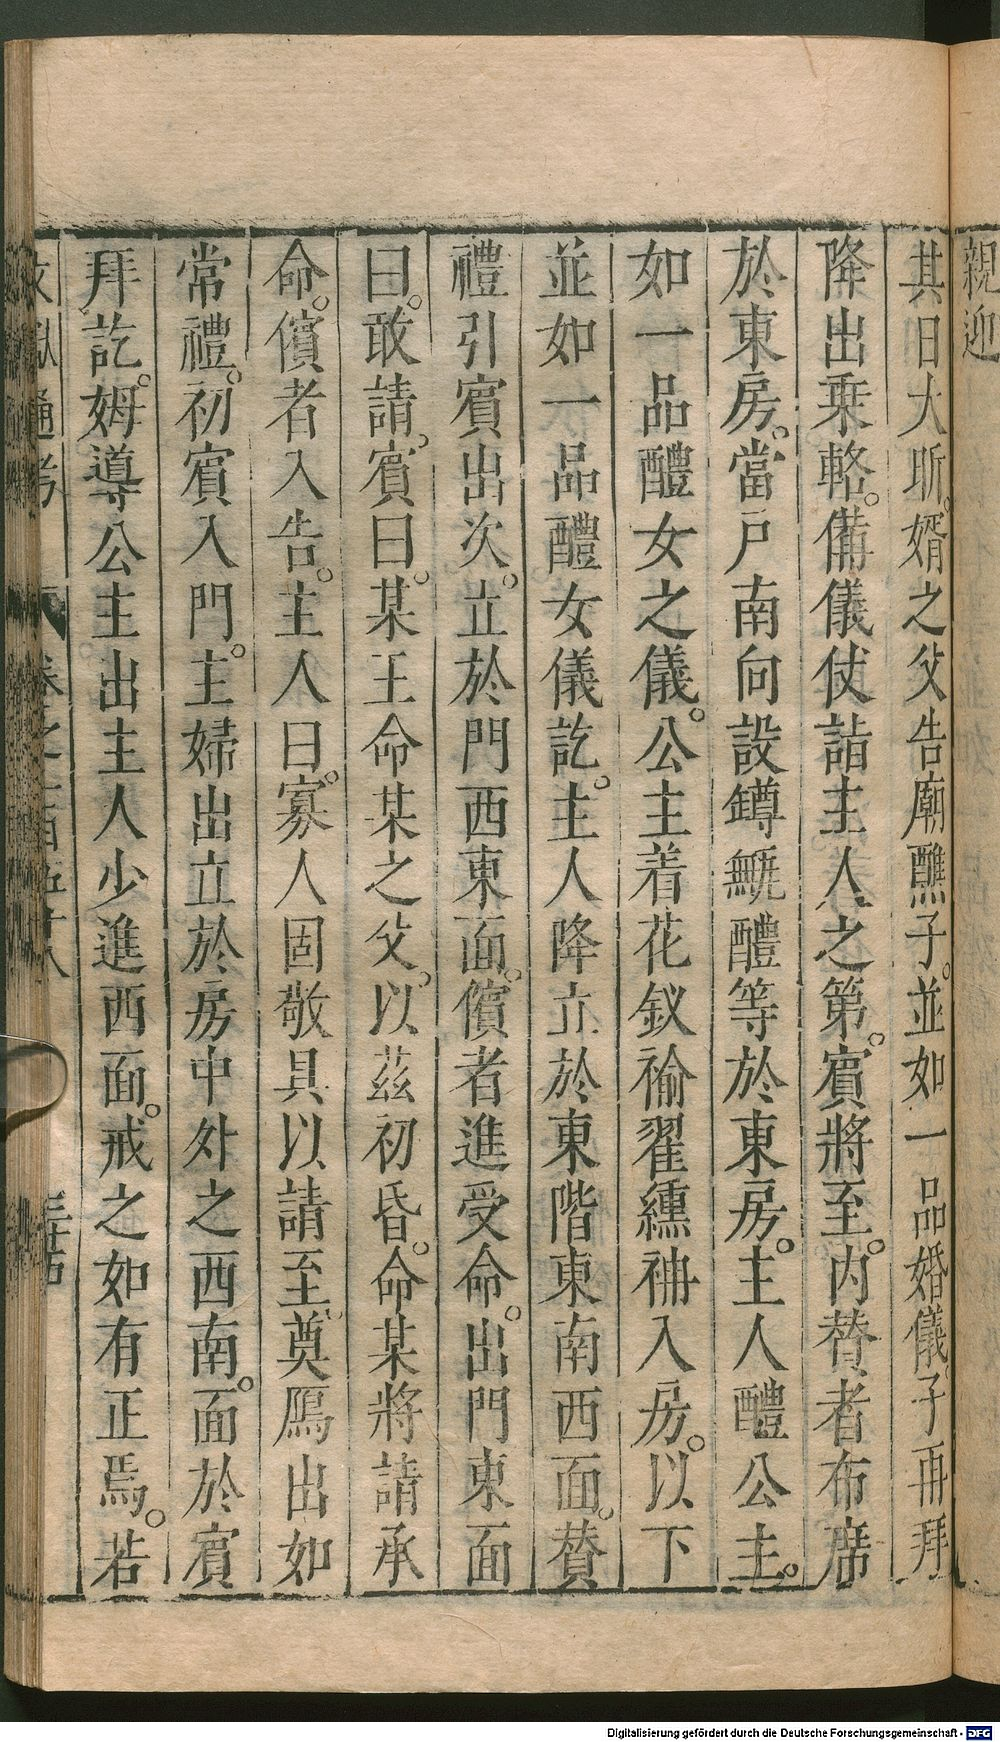 親迎
其日大昕。婿之父告廟醮子。並如一品婚儀。子再拜
降出乗輅。備儀仗詣主人之第。賓將至。內賛者布席
於東房。當戶南向設罇甒醴等於東房。主人醴公主。
如一品醴女之儀。公主着花釵褕翟纁袡入房。以下
並如一品醴女儀訖。主人降立於東階東南西面。賛
禮引賓出次。立於門西東面。儐者進受命。出門東面
曰。敢請。賓曰。某王命某之父。以茲初昏。命某將請承
命。儐者入告。主人曰。寡人固敬具以請至。奠鴈出如
常禮。初賓入門。主婦出立於房中外之西南。面於賓
拜訖。姆導公主出主人少進西面。戒之如有正焉。若
文獻通考 卷之二百五十八
Digitalisierung gefördert durch die Deutsche Forschungsgemeinschaft - DFG